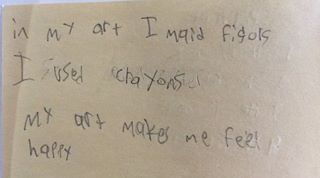 in my art I maid figols
I used chrayons
my art makes me feel
happy